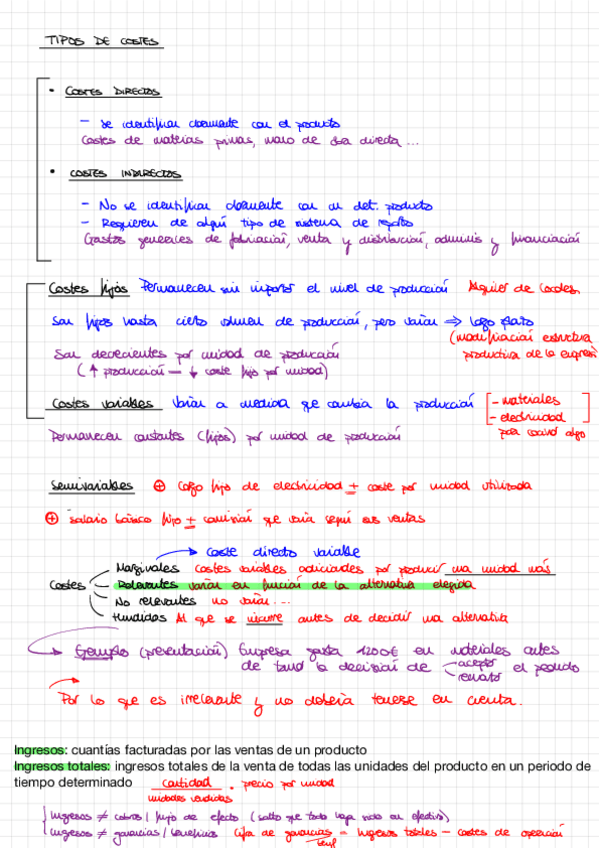 TIPOS DE COSTES
• COSTES DIRECTOS
- Se identifican claramente con el producto
Costes de materias primas, mano de obra directa ...
• COSTES INDIRECTOS
- No se identifican claramente con un det. producto
- Requieren de algún tipo de sistema de reparto
Gastos generales de fabricación, venta y distribución, adminis y financiación
Costes fijos Permanecen sin importar el nivel de producción Alquiler de locales
San fijos hasta cierto volumen de producción, pero varían ⇒ largo plazo
(modificación estructura
productiva de la empresa
San decrecientes por unidad de producción
(↑ producción — ↓ coste fijo por unidad)
Costes variables Varían a medida que cambia la producción [- materiales
- electricidad]
para cocinar algo
Permanecen constantes (fijos) por unidad de producción
Semivariables ⊕ cargo fijo de electricidad + coste por unidad utilizada
⊕ salario básico fijo + comisión que varía según sus ventas
→ coste directo variable
Marginales costes variables adicionales por producir una unidad más
Costes Relevantes varían en función de la alternativa elegida
No relevantes no varían...
Hundidos Al que se incurre antes de decidir una alternativa
Ejemplo (presentación) Empresa gasta 1200€ en materiales antes
de tomar la decisión de aceptar el pedido
rechazar
Por lo que es irrelevante y no debería tenerse en cuenta.
Ingresos: cuantías facturadas por las ventas de un producto
Ingresos totales: ingresos totales de la venta de todas las unidades del producto en un periodo de
tiempo determinado cantidad • precio por unidad
unidades vendidas
Ingresos ≠ cobros / flujo de efecto (salvo que todo haya sido en efectivo)
Ingresos ≠ ganancias / beneficios cifra de ganancias = Ingresos totales - costes de operación